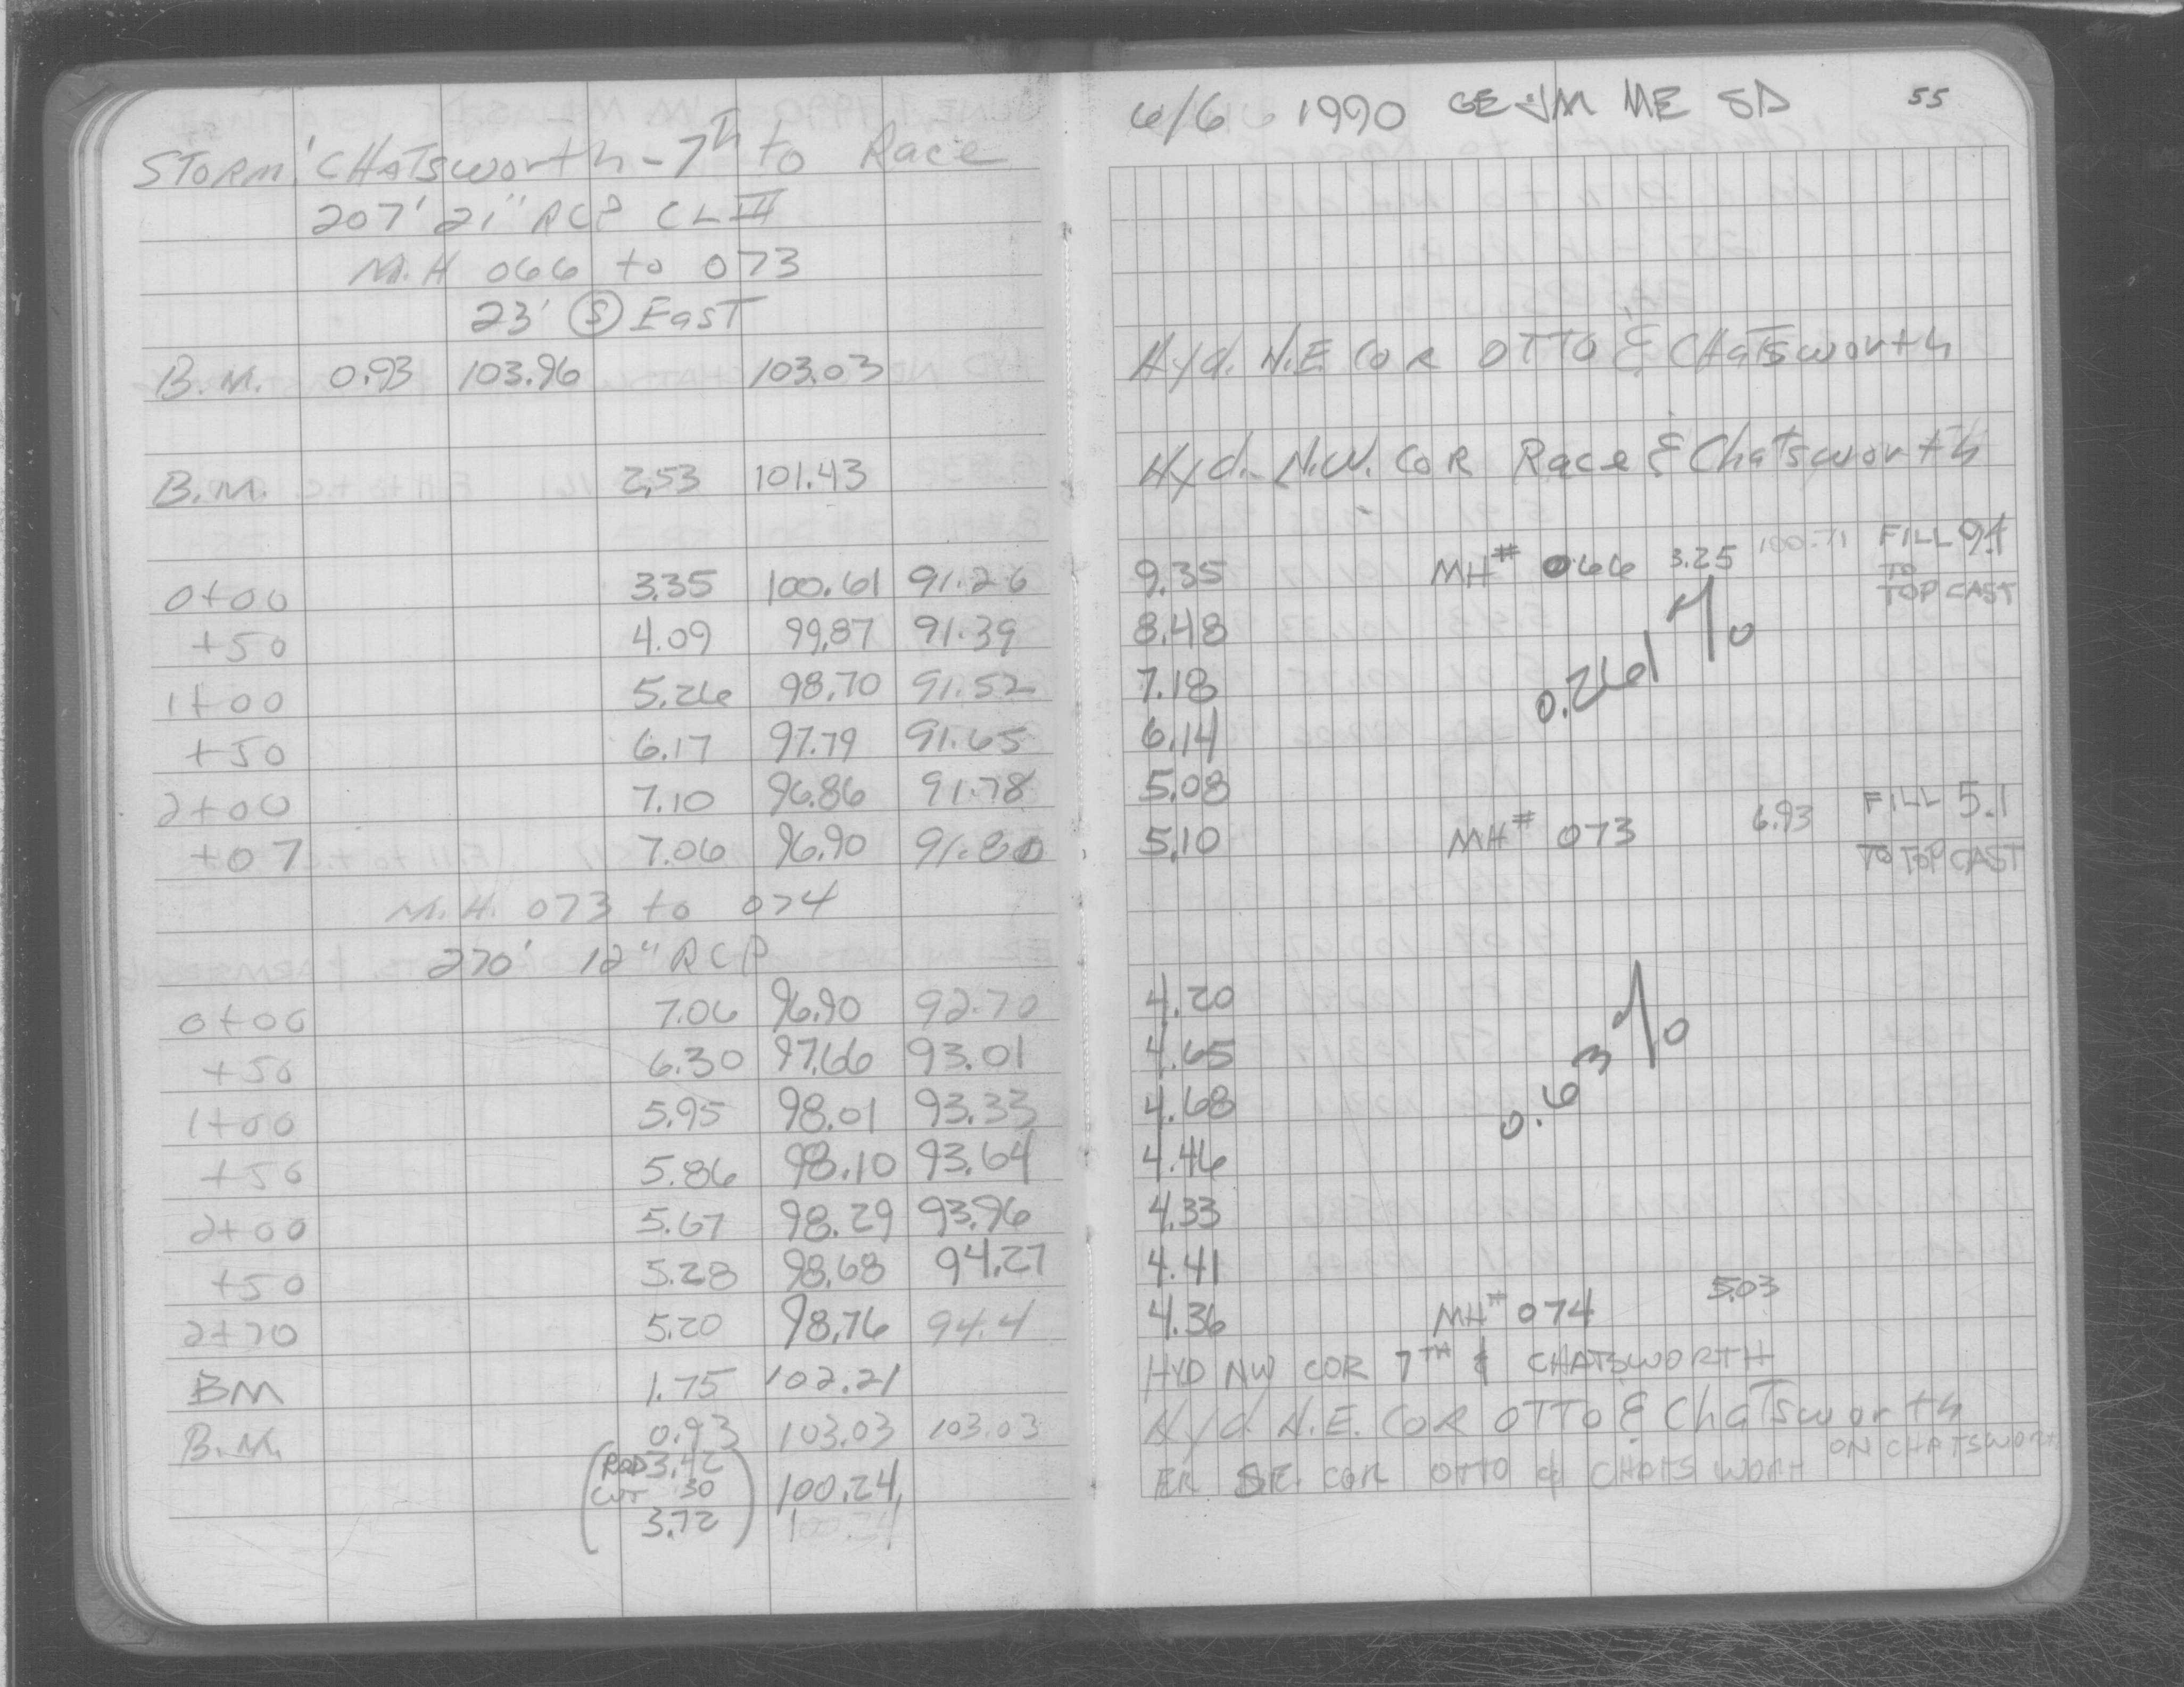 STORM: CHATSworth - 7th to Race
207' 21" RCP CL III
M.H 066 to 073
23' (S) EasT
B.M. 0.93 103.96 103.03
B.M. 2.53 101.43
0+00 3.35 100.61 91.26
+50 4.09 99.87 91.39
1+00 5.26 98.70 91.52
+50 6.17 97.79 91.65
2+00 7.10 96.86 91.78
+07 7.06 96.90 91.80
M.H. 073 to 074
270' 12" RCP
0+00 7.06 96.90 92.70
+50 6.30 97.66 93.01
1+00 5.95 98.01 93.33
+50 5.86 98.10 93.64
2+00 5.67 98.29 93.96
+50 5.28 98.68 94.27
2+70 5.20 98.76 94.4
BM 1.75 102.21
B.M. 0.93 103.03 103.03
(ROD 3.42
CUT 30 100.24
3.72)
6/6 1990 GE JM ME SD 55
Hyd. N.E COR OTTO & CHATSworth
Hyd. N.W. COR Race & Chatsworth
9.35 MH# 066 3.25 100.71 FILL 9.4
TO
TOP CAST
8.48
7.18 0.261 %
6.14
5.08
5.10 MH# 073 6.93 FILL 5.1
TO TOP CAST
4.20
4.65
4.68 0.63 %
4.46
4.33
4.41
4.36 MH# 074 5.03
HYD NW COR 7TH & CHATSWORTH
Hyd N.E. COR OTTO & ChaTsworth
SE. COR OTTO & CHATSWORTH ON CHATSWORTH